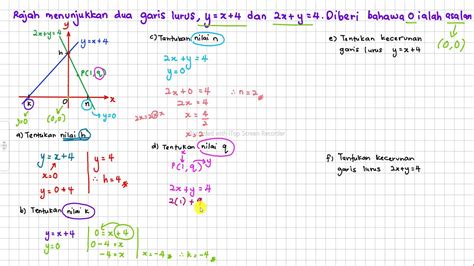 Rajah menunjukkan dua garis lurus, y=x+4 dan 2x+y=4. Diberi bahawa O ialah asalan
(0,0)
2x+y=4
y=x+4
h
P(1,q)
k
O
n
x
y=0
(0,0)
a) Tentukan nilai h
x=0
y=x+4
y=0+4
y=4
∴ h=4
b) Tentukan nilai k
y=x+4
y=0
0=x+4
0-4=x
-4=x
x=-4
∴ k=-4
c) Tentukan nilai n
2x+y=4
y=0
2x+0=4
2x=4
x=4/2
x=2
∴ n=2
d) Tentukan nilai q
P(1,q)
x
y
2x+y=4
2(1)+q
e) Tentukan kecerunan
garis lurus y=x+4
f) Tentukan kecerunan
garis lurus 2x+y=4